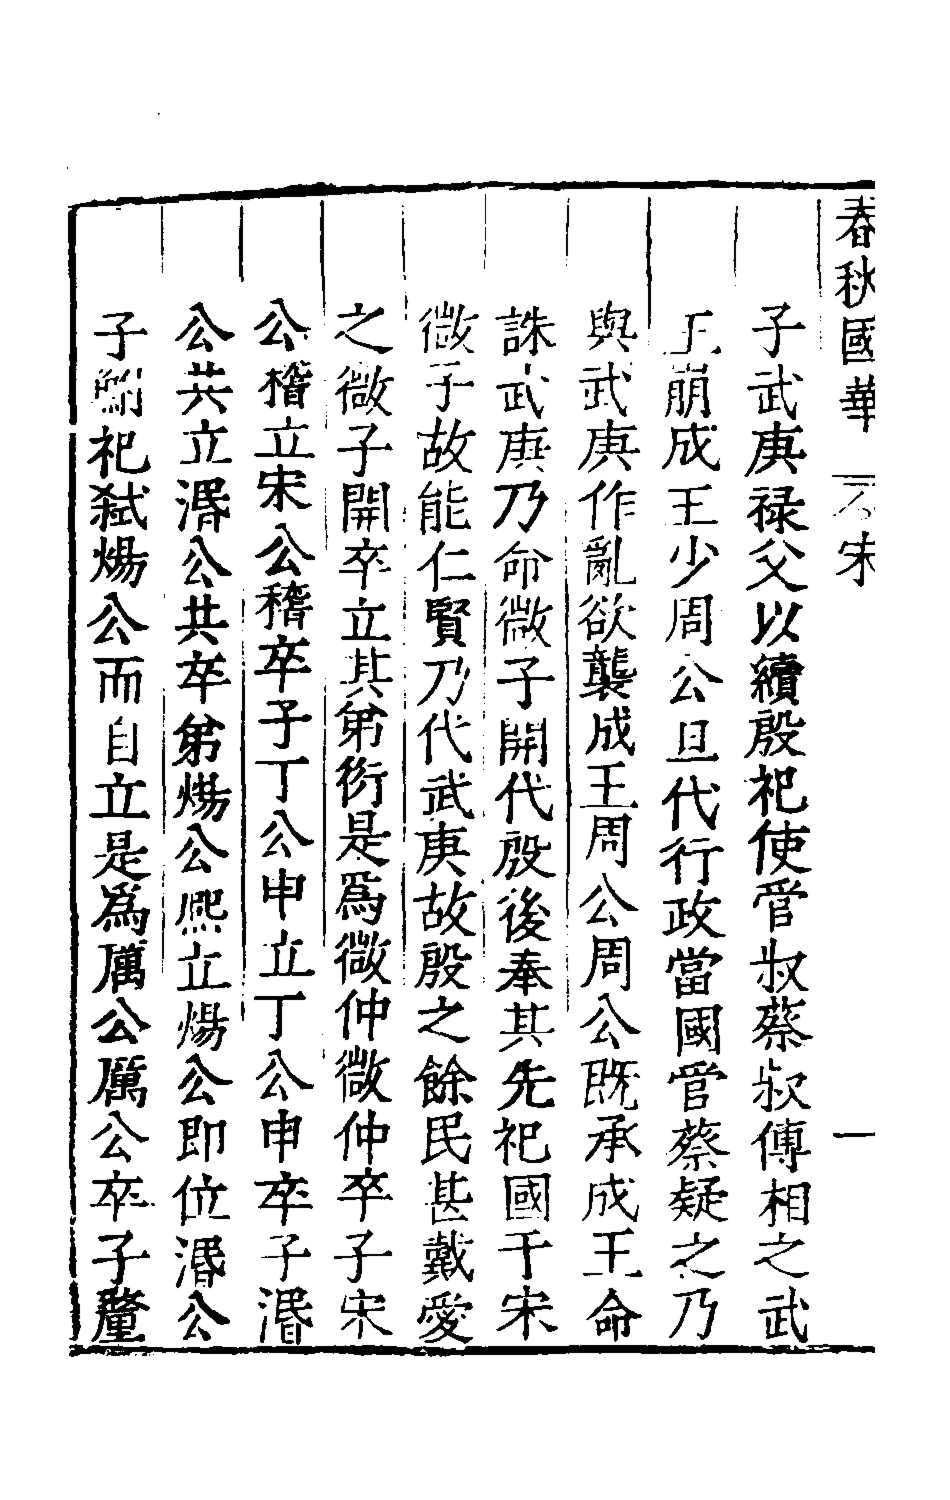 春秋國華 宋 一
子武庚祿父以續殷祀使管叔蔡叔傅相之武
王崩成王少周公旦代行政當國管蔡疑之乃
與武庚作亂欲襲成王周公周公既承成王命
誅武庚乃命微子開代殷後奉其先祀國于宋
微子故能仁賢乃代武庚故殷之餘民甚戴愛
之微子開卒立其弟衍是爲微仲微仲卒子宋
公稽立宋公稽卒子丁公申立丁公申卒子湣
公共立湣公共卒弟煬公熙立煬公即位湣公
子鮒祀弒煬公而自立是爲厲公厲公卒子釐